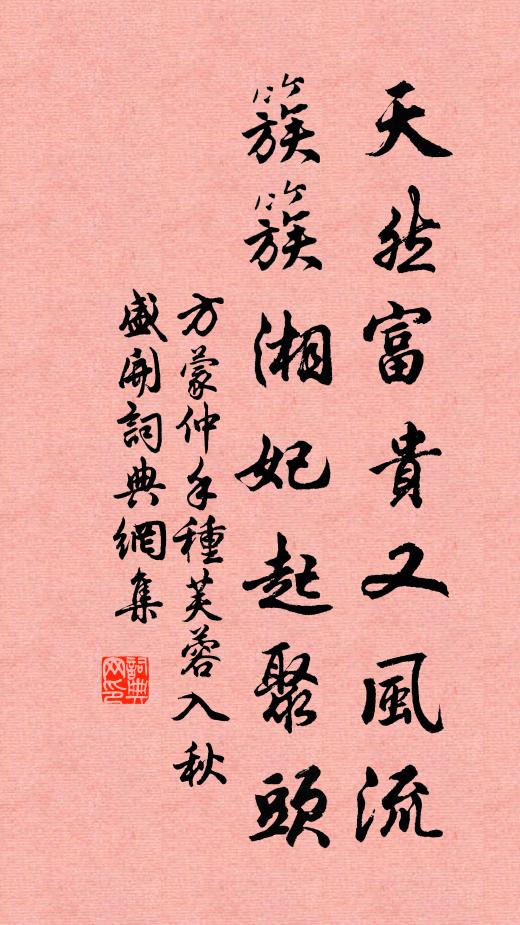 天然富貴又風流
簇簇湘妃起聚頭
方蒙仲手種芙蓉入秋
盛開詞典網集
詞典網印